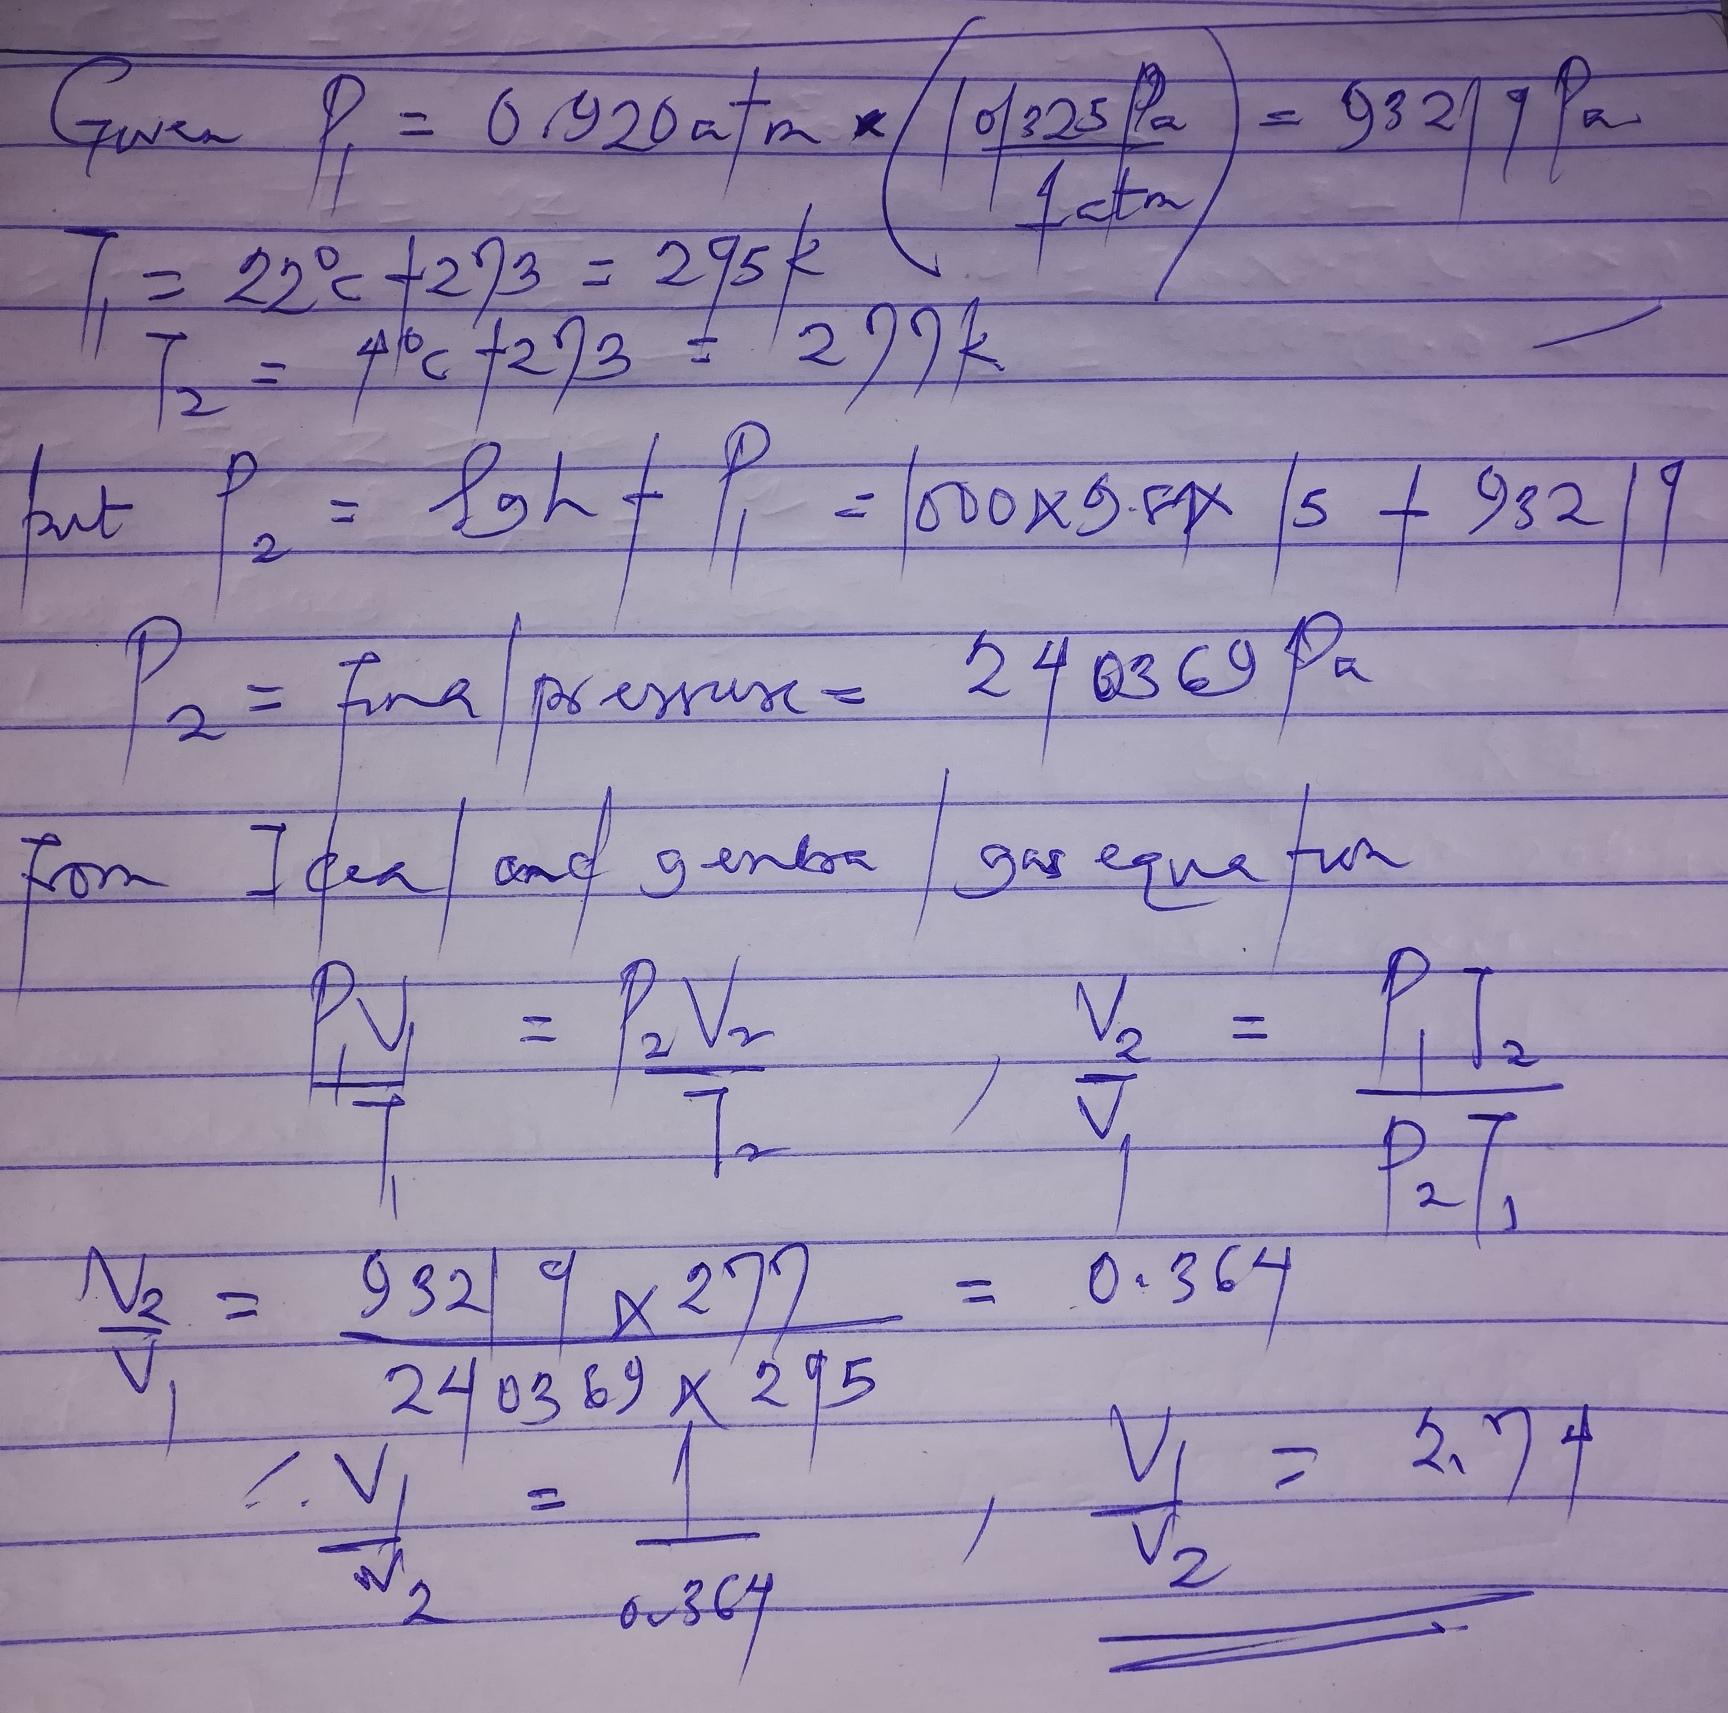 Given P₁ = 0.920 atm × (101325 Pa / 1 atm) = 93219 Pa
T₁ = 22°c + 273 = 295k
T₂ = 4°c + 273 = 277k
but P₂ = ρgh + P₁ = 1000 × 9.81 × 15 + 93219
P₂ = final pressure = 240369 Pa
from Ideal and genral gas equation
P₁V₁ / T₁ = P₂V₂ / T₂ , V₂ / V₁ = P₁T₂ / P₂T₁
V₂ / V₁ = 93219 × 277 / 240369 × 295 = 0.364
∴ V₁ / V₂ = 1 / 0.364 , V₁ / V₂ = 2.74